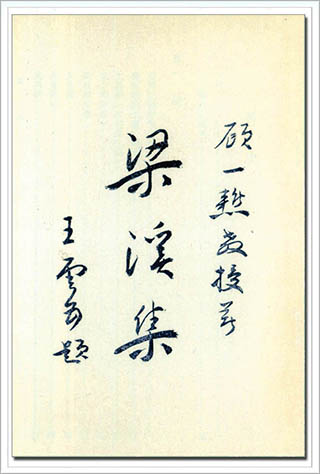 顾一樵教授著
梁溪集
王雲五題